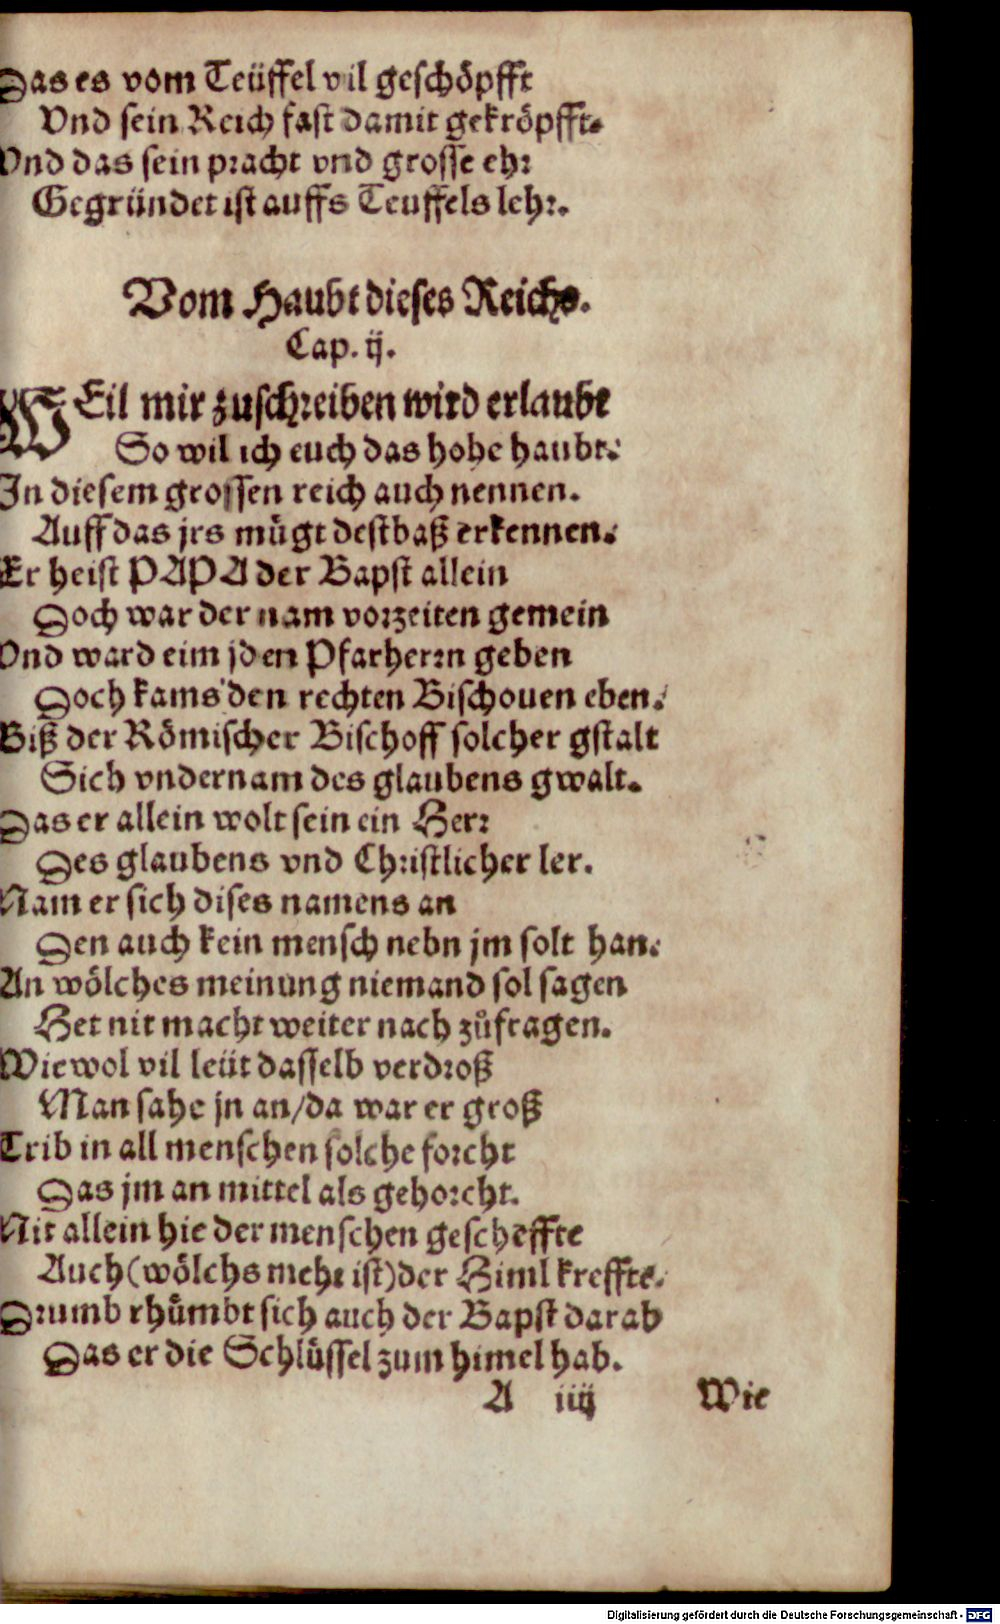 Das es vom Teüffel vil geschöpfft
Vnd sein Reich fast damit gekröpfft.
Vnd das sein pracht vnd grosse ehr
Gegründet ist auffs Teuffels lehr.
Vom Haubt dieses Reichs.
Cap. ij.
WEil mir zuschreiben wird erlaubt
So wil ich euch das hohe haubt:
In diesem grossen reich auch nennen.
Auff das jrs mügt destbaß erkennen.
Er heist PAPA der Bapst allein
Doch war der nam vorzeiten gemein
Vnd ward eim jden Pfarherrn geben
Doch kams den rechten Bischouen eben.
Biß der Römischer Bischoff solcher gstalt
Sich vndernam des glaubens gwalt.
Das er allein wolt sein ein Herr
Des glaubens vnd Christlicher ler.
Nam er sich dises namens an
Den auch kein mensch nebn jm solt han.
An wölches meinung niemand sol sagen
Het nit macht weiter nach zůfragen.
Wiewol vil leüt dasselb verdroß
Man sahe jn an/da war er groß
Trib in all menschen solche forcht
Das jm an mittel als gehorcht.
Nit allein hie der menschen gescheffte
Auch (wölchs mehr ist) der Himl kreffte.
Drumb rhůmbt sich auch der Bapst darab
Das er die Schlüssel zum himel hab.
A iiij Wie
Digitalisierung gefördert durch die Deutsche Forschungsgemeinschaft - DFG